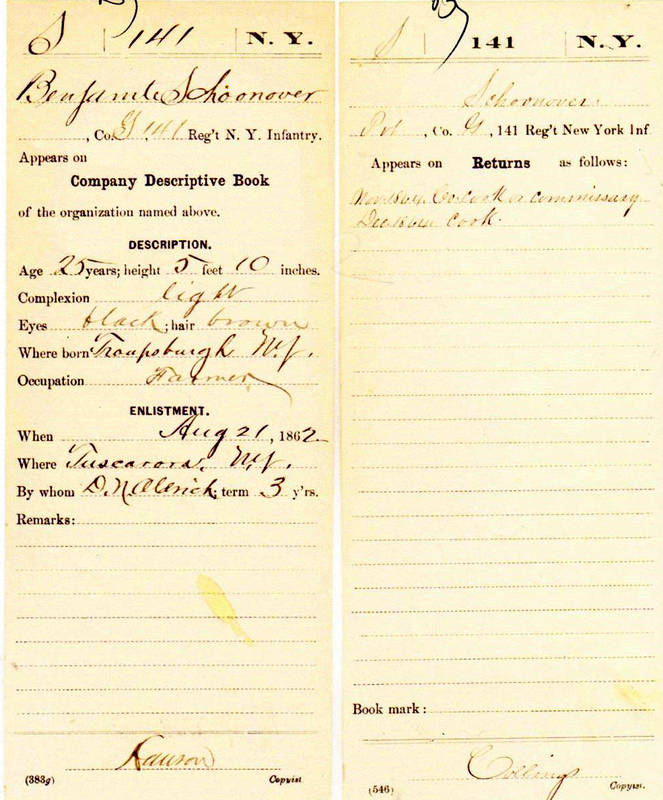 S | 141 | N. Y.
Benjamin Schoonover
, Co. G, 141 Reg't N. Y. Infantry.
Appears on
Company Descriptive Book
of the organization named above.
DESCRIPTION.
Age 25 years; height 5 feet 10 inches.
Complexion light
Eyes black; hair brown
Where born Troupsburgh N.Y.
Occupation Farmer
ENLISTMENT.
When Aug 21, 1862
Where Tuscarora, N.Y.
By whom D. N. Aldrich; term 3 y'rs.
Remarks:
Copyist.
(383g)
S | 141 | N. Y.
Schoonover.
Pvt, Co. G, 141 Reg't New York Inf
Appears on Returns as follows:
Cook commissary
cook.
Book mark:
Collings
(546) Copyist.